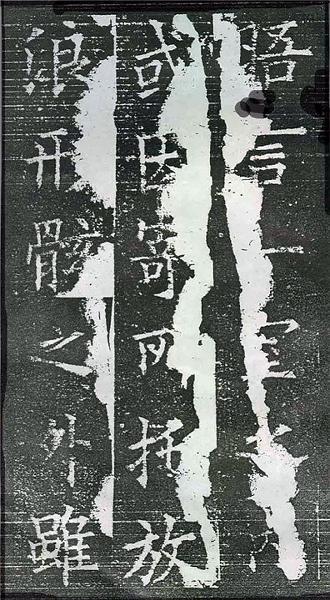 晤言一室之内
或因寄所托放
浪形骸之外雖